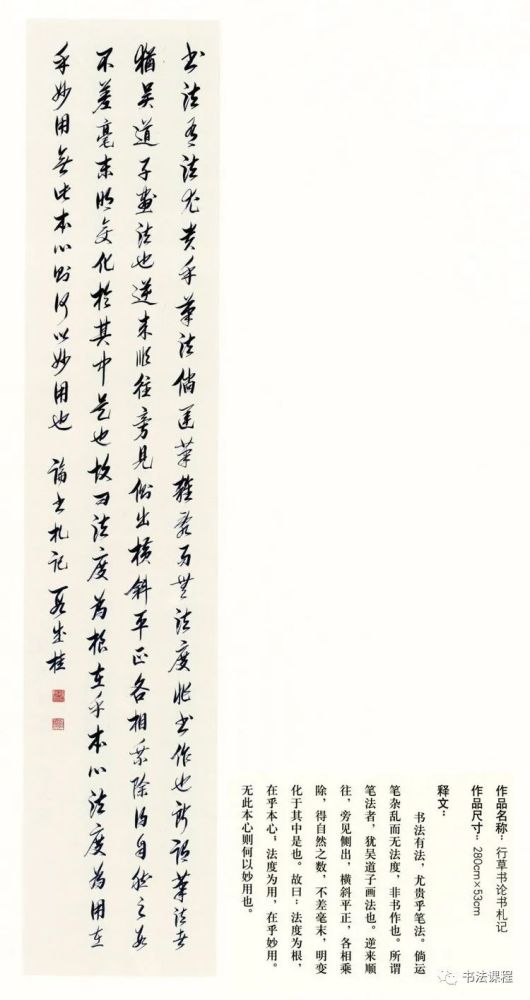 书法有法尤贵乎筆法倘運筆雜乱而無法度非书作也所謂筆法者
猶吴道子畫法也逆来顺往旁見側出橫斜平正各相乘除得自然之数
不差毫末明变化於其中是也故曰法度为根在乎本心法度为用在
乎妙用無此本心则何以妙用也 論书札记 段成桂
作品名称：行草书论书札记
作品尺寸：280cm×53cm
释文：
书法有法，尤贵乎笔法。倘运
笔杂乱而无法度，非书作也。所谓
笔法者，犹吴道子画法也。逆来顺
往，旁见侧出，横斜平正，各相乘
除，得自然之数，不差毫末，明变
化于其中是也。故曰：法度为根，
在乎本心；法度为用，在乎妙用。
无此本心则何以妙用也。
书法课程